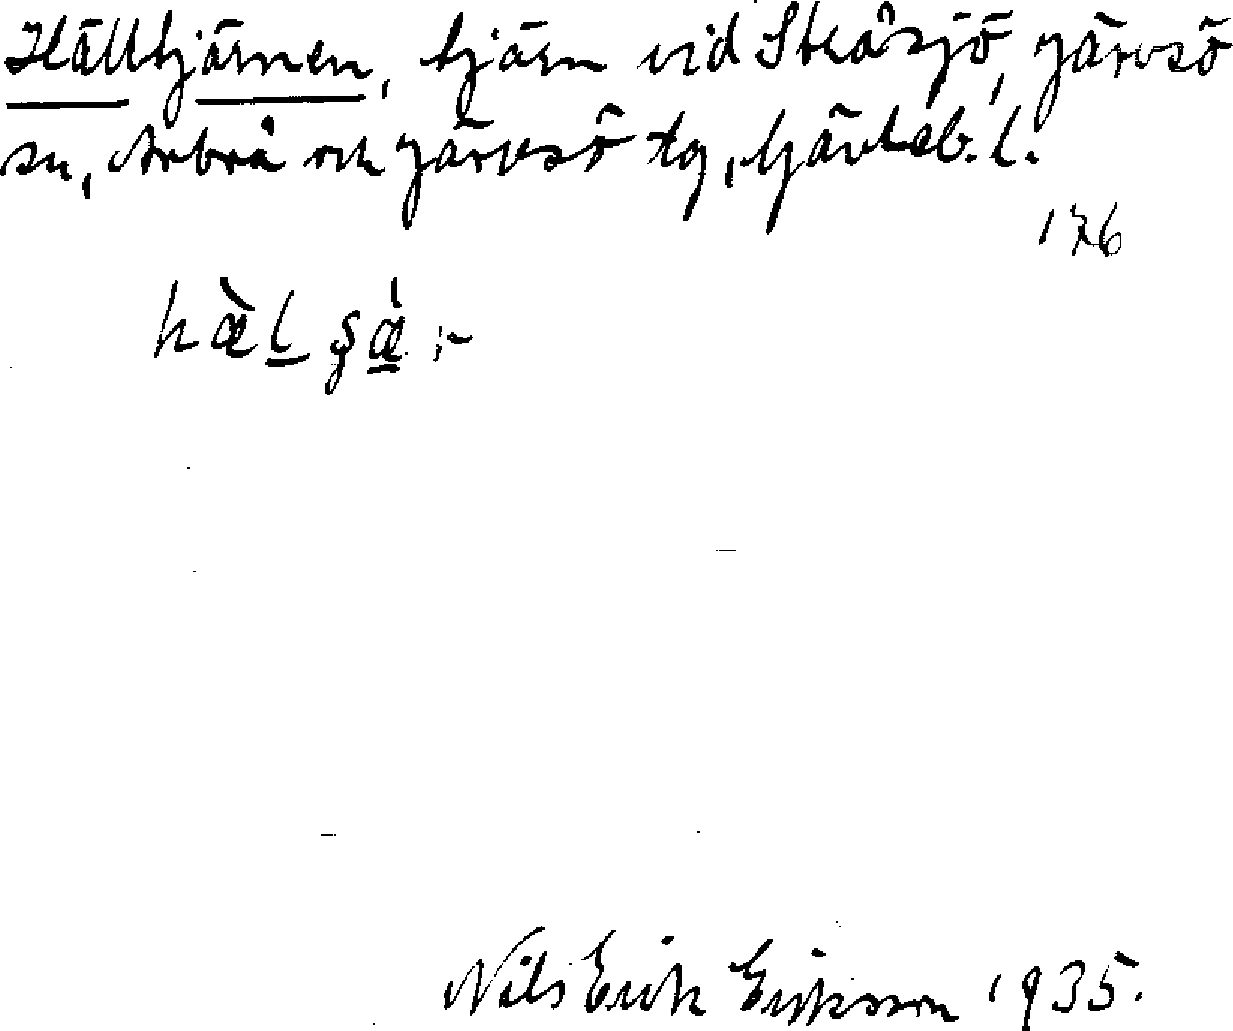 Hälltjärnen, tjärn vid Skåsjö, Järvsö
sn, Arbrå och Järvsö tg, Gävleb. l.
176
hæ̀l
Nils Erik Eriksson 1935.